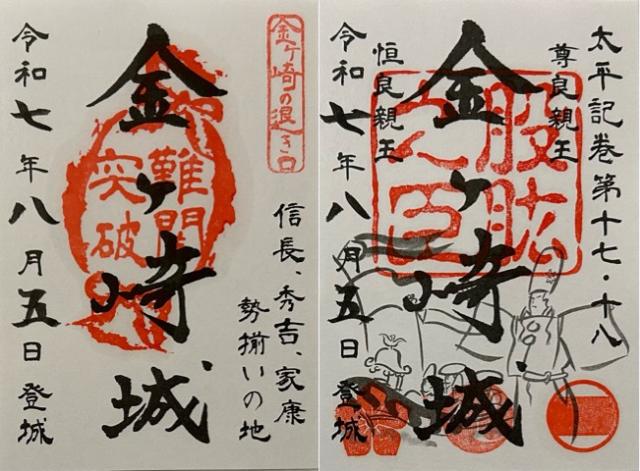 金ヶ崎の退き口
信長、秀吉、家康
勢揃いの地
難関
突破
金ヶ崎城
令和七年八月五日登城
太平記巻第十七・十八
尊良親王
股肱
之臣
金ヶ崎城
恒良親王
令和七年八月五日登城